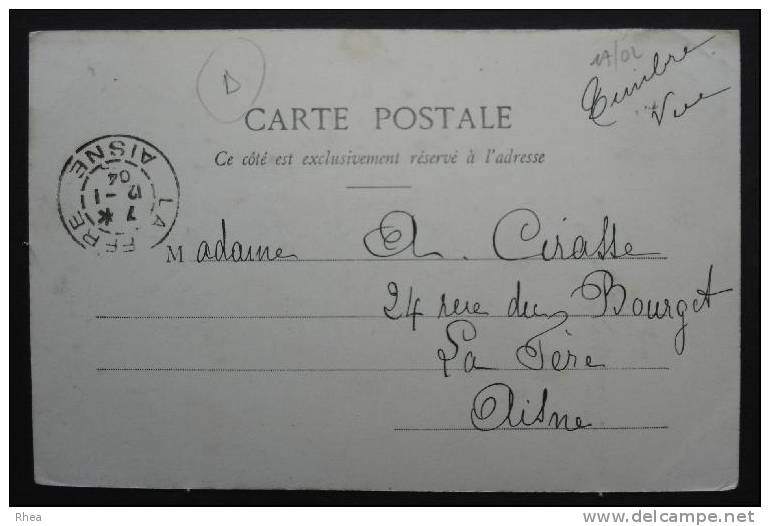 D
Timbre
Vue
CARTE POSTALE
Ce côté est exclusivement réservé à l'adresse
LA FERE
AISNE
7 *
12 - 1
04
Madame A. Cirasse
24 rue du Bourget
La Fère
Aisne
Rhea
www.delcampe.net